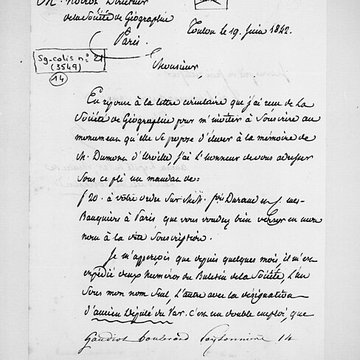 M. Noirot Directeur
de la Société de Géographie
Paris.
Toulon le 19 Juin 1842.
Sg-colis n° 21
(3549)
14
Monsieur
En réponse à la lettre circulaire que j'ai reçue de la
Société de Géographie pour m'inviter à souscrire au
monument qu'elle se propose d'élever à la mémoire de
M. Dumont d'Urville, j'ai l'honneur de vous adresser
sous ce pli un mandat de :
f 20. à votre ordre sur MM. Durand et Cie
Banquiers à Paris, que vous voudrez bien verser en mon
nom à la dite souscription.
Je m'aperçois que depuis quelques mois, il m'est
expédié deux numéros du Bulletin de la Société, l'un
sous mon nom seul, l'autre avec la désignation
d'ancien Député du Var. C'est un double emploi, que
boulevard Poissonnière 14